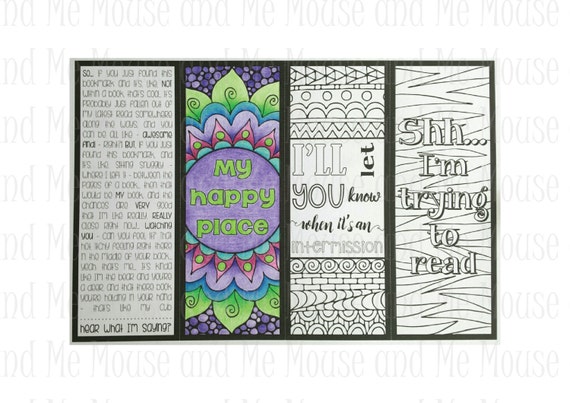 and Me Mouse and Me Mouse and Me Mouse
SO... IF YOU JUST FOUND THIS
BOOKMARK AND IT'S, LIKE, NOT
WITHIN A BOOK, THAT'S COOL. IT'S
PROBABLY JUST FALLEN OUT OF
MY LATEST READ SOMEWHERE
ALONG THE WAYS, AND YOU
CAN BE ALL LIKE - AWESOME
FIND! - RIGHT? BUT, IF YOU JUST
FOUND THIS BOOKMARK, AND
IT'S, LIKE, SITTING SNUGGLY -
WHERE I LEFT IT - BETWEEN THE
PAGES OF A BOOK, THEN THAT
WOULD BE MY BOOK AND THE
CHANCES ARE VERY GOOD
THAT I'M LIKE REALLY REALLY
CLOSE RIGHT NOW, WATCHING
YOU - CAN YOU FEEL IT? THAT
HOT, LICKY FEELING RIGHT THERE
IN THE MIDDLE OF YOUR BOOK,
YEAH, THAT'S ME... IT'S KINDA
LIKE I'M THE BEAR AND YOU'RE A
DEER, AND THAT THERE BOOK
YOU'RE HOLDING IN YOUR HAND
- THAT'S LIKE MY CUB.
HEAR WHAT I'M SAYING?
My
happy
place
I'LL let
YOU know
when it's an
intermission
Shh...
I'm
trying
to
read
and Me Mouse and Me Mouse and Me Mouse